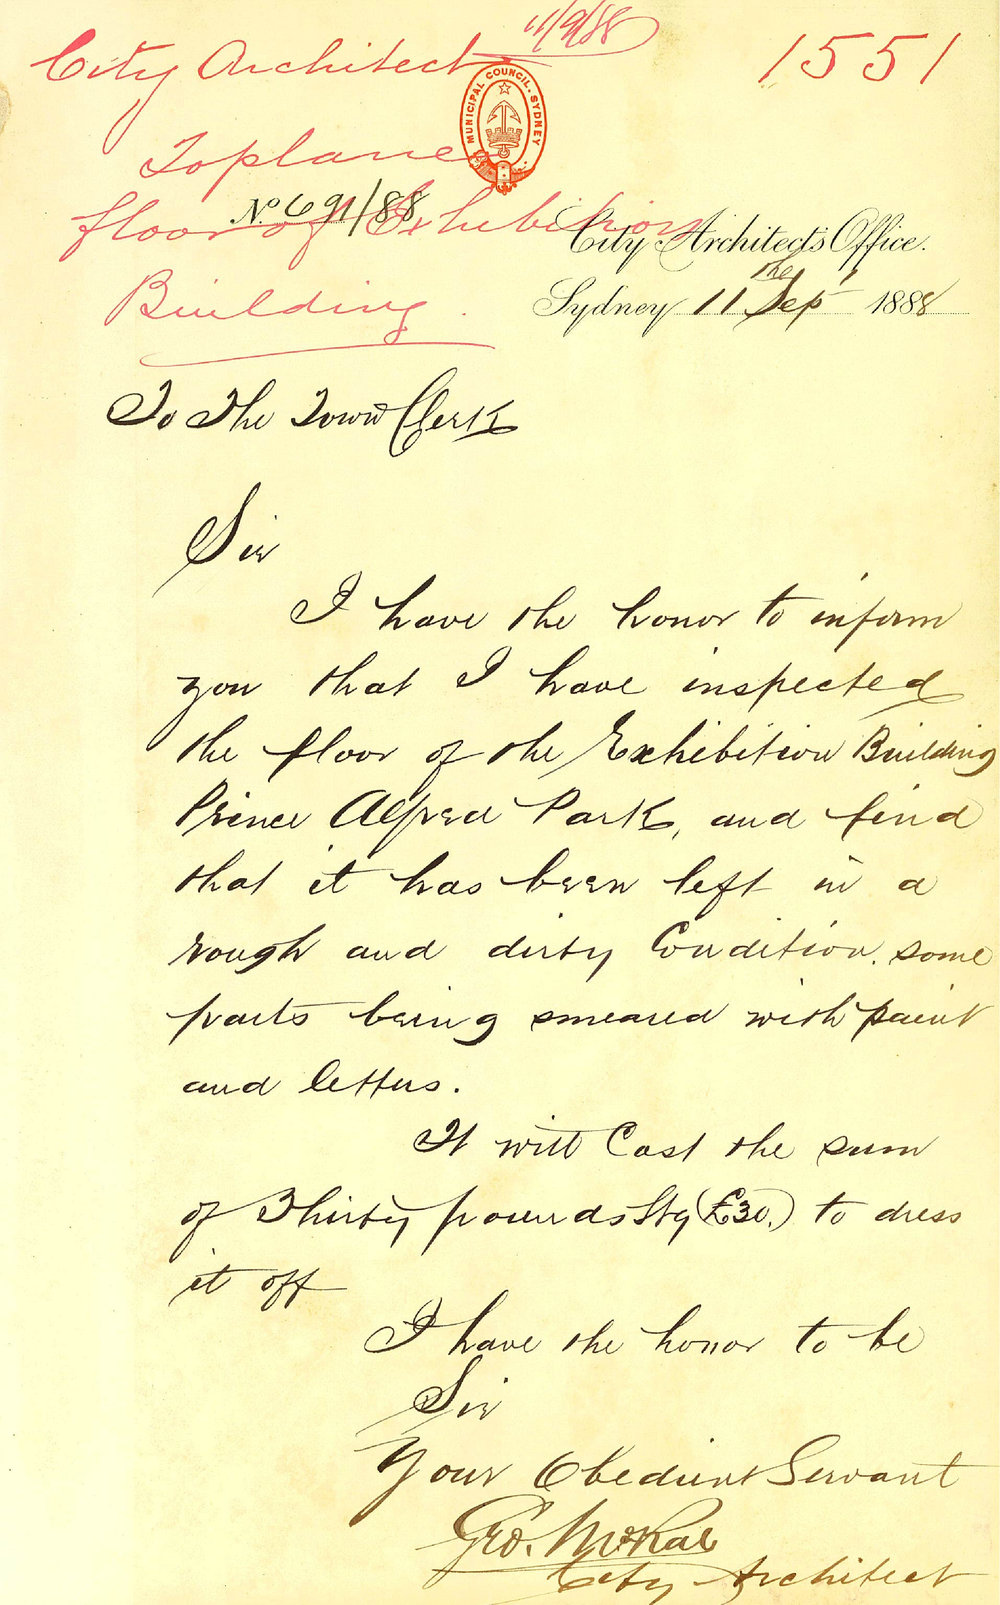 11/9/88
City Architect
1551
MUNICIPAL COUNCIL. SYDNEY
To plane
floor of Exhibition
Building.
No. 691/88
City Architect's Office.
Sydney 11the Sep' 1888
To The Town Clerk
Sir
I have the honor to inform
you that I have inspected
the floor of the Exhibition Building
Prince Alfred Park, and find
that it has been left in a
rough and dirty Condition. some
parts being smeared with paint
and letters.
It will Cost the sum
of Thirty pounds Stg (£30.) to dress
it off
I have the honor to be
Sir
Your Obedient Servant
Geo. McRae
City Architect